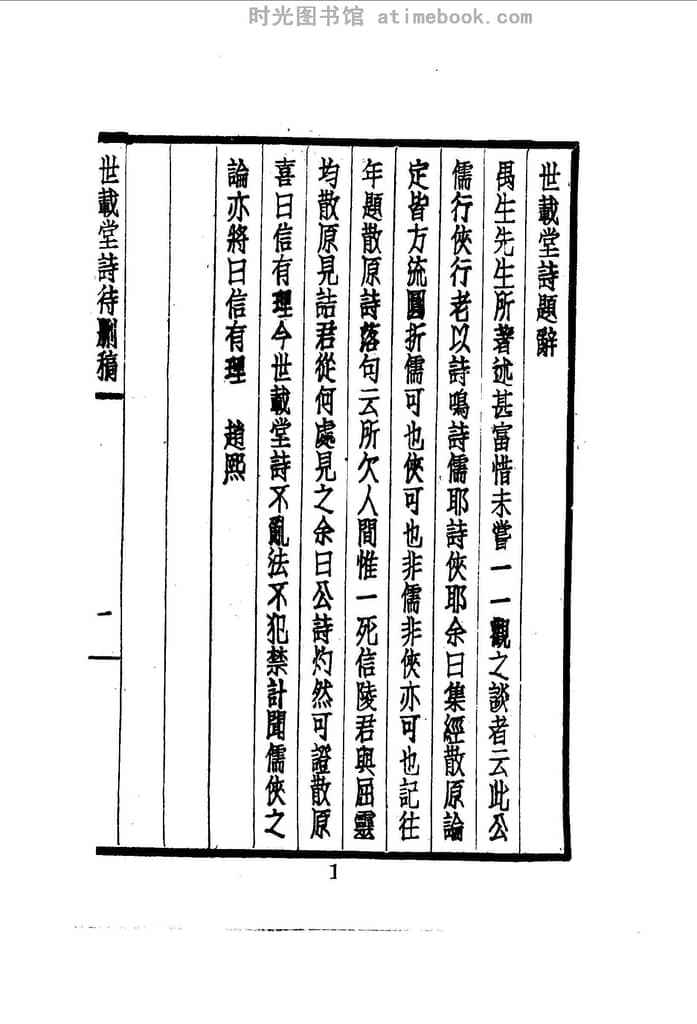 时光图书馆 atimebook.com
世載堂詩題辭
禺生先生所著述甚富惜未嘗一一觀之談者云此公
儒行俠行老以詩鳴詩儒耶詩俠耶余曰集經散原論
定皆方流圓折儒可也俠可也非儒非俠亦可也記往
年題散原詩落句云所欠人間惟一死信陵君與屈靈
均散原見詰君從何處見之余曰公詩灼然可證散原
喜曰信有理今世載堂詩不亂法不犯禁計聞儒俠之
論亦將曰信有理 趙熙
世載堂詩待刪稿
一
1